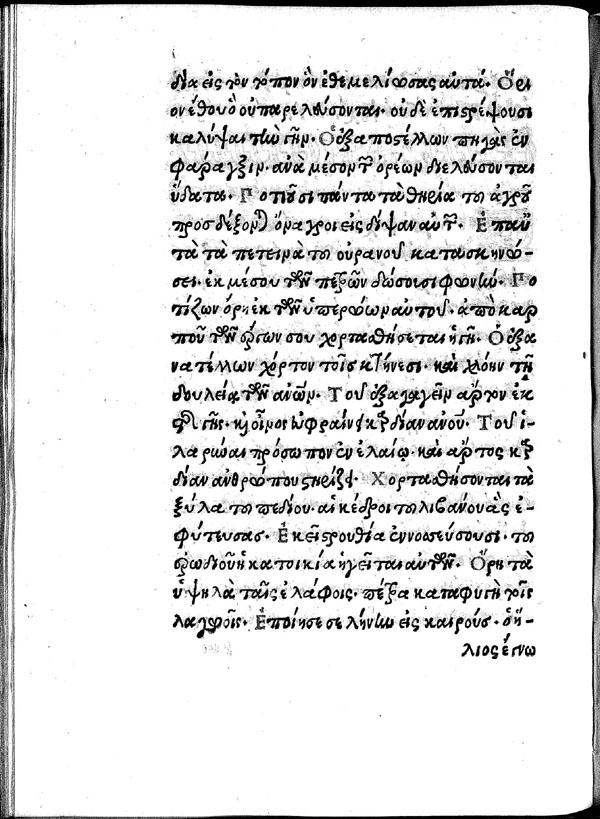 δία εἰς τὸν τόπον ὃν ἐθεμελίωσας αὐτά. Ὅρι
ον ἔθου ὃ οὐ παρελεύσονται. οὐδὲ ἐπιστρέψουσι
καλύψαι τὴν γῆν. Ὁ ἐξαποστέλλων πηγὰς ἐν
φάραγξιν. ἀνὰ μέσον τῶν ὀρέων διελεύσονται
ὕδατα. Ποτιοῦσι πάντα τὰ θηρία τοῦ ἀγροῦ
προσδέξονται ὄναγροι εἰς δίψαν αὐτῶν. Ἐπ αὐ
τὰ τὰ πετεινὰ τοῦ οὐρανοῦ κατασκηνώ-
σει. ἐκ μέσου τῶν πετρῶν δώσουσι φωνήν. Πο
τίζων ὄρη ἐκ τῶν ὑπερώων αὐτοῦ. ἀπὸ καρ
ποῦ τῶν ἔργων σου χορτασθήσεται ἡ γῆ. Ὁ ἐξα
νατέλλων χόρτον τοῖς κτήνεσι. καὶ χλόην τῇ
δουλείᾳ τῶν ἀνων. Τοῦ ἐξαγαγεῖν ἄρτον ἐκ
τῆς γῆς. κ οἶνος εὐφραίνει καρδίαν ανου. Τοῦ ἱ-
λαρῶσαι πρόσωπον ἐν ἐλαίῳ. καὶ ἄρτος καρ
δίαν ἀνθρώπου στηρίζει. Χορτασθήσονται τὰ
ξύλα τοῦ πεδίου. αἱ κέδροι τοῦ λιβάνου ἃς ἐ-
φύτευσας. Ἐκεῖ στρουθία ἐννοσσεύσουσι. τοῦ
ἐρωδιοῦ ἡ κατοικία ἡγεῖται αὐτῶν. Ὄρη τὰ
ὑψηλὰ ταῖς ἐλάφοις. πέτρα καταφυγὴ τοῖς
λαγωοῖς. Ἐποίησε σελήνην εἰς καιρούς. ὁ ἥ-
λιος ἔγνω